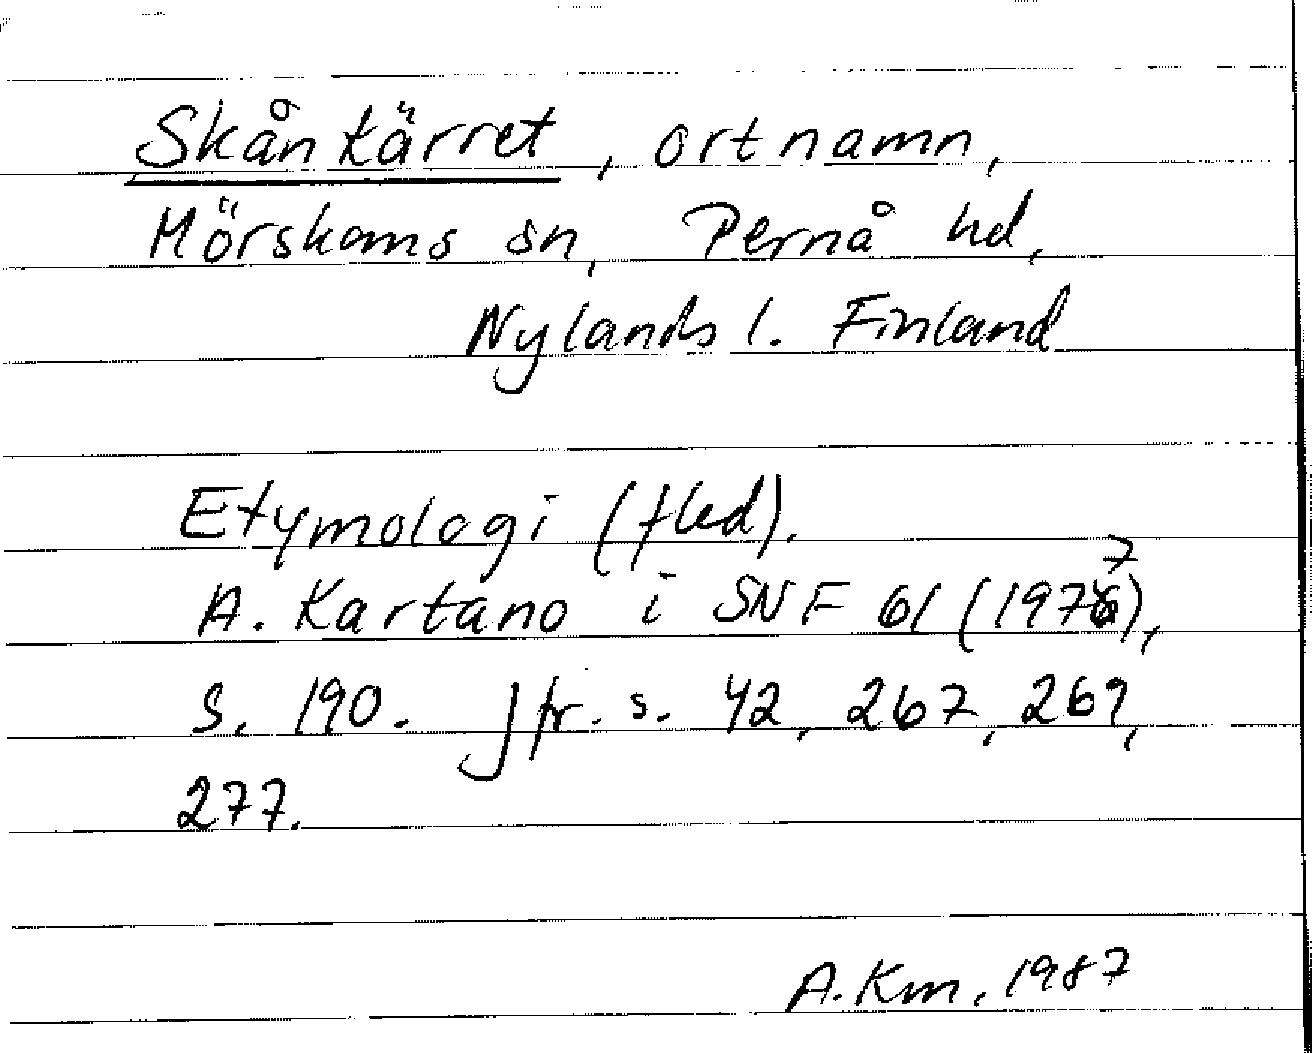 Skånkärret, ortnamn,
Mörskoms sn, Pernå hd,
Nylands l. Finland
Etymologi (fled).
A. Kartano i SNF 61 (1977),
s. 190. Jfr. s. 42, 267, 269,
277.
A. Km, 1987